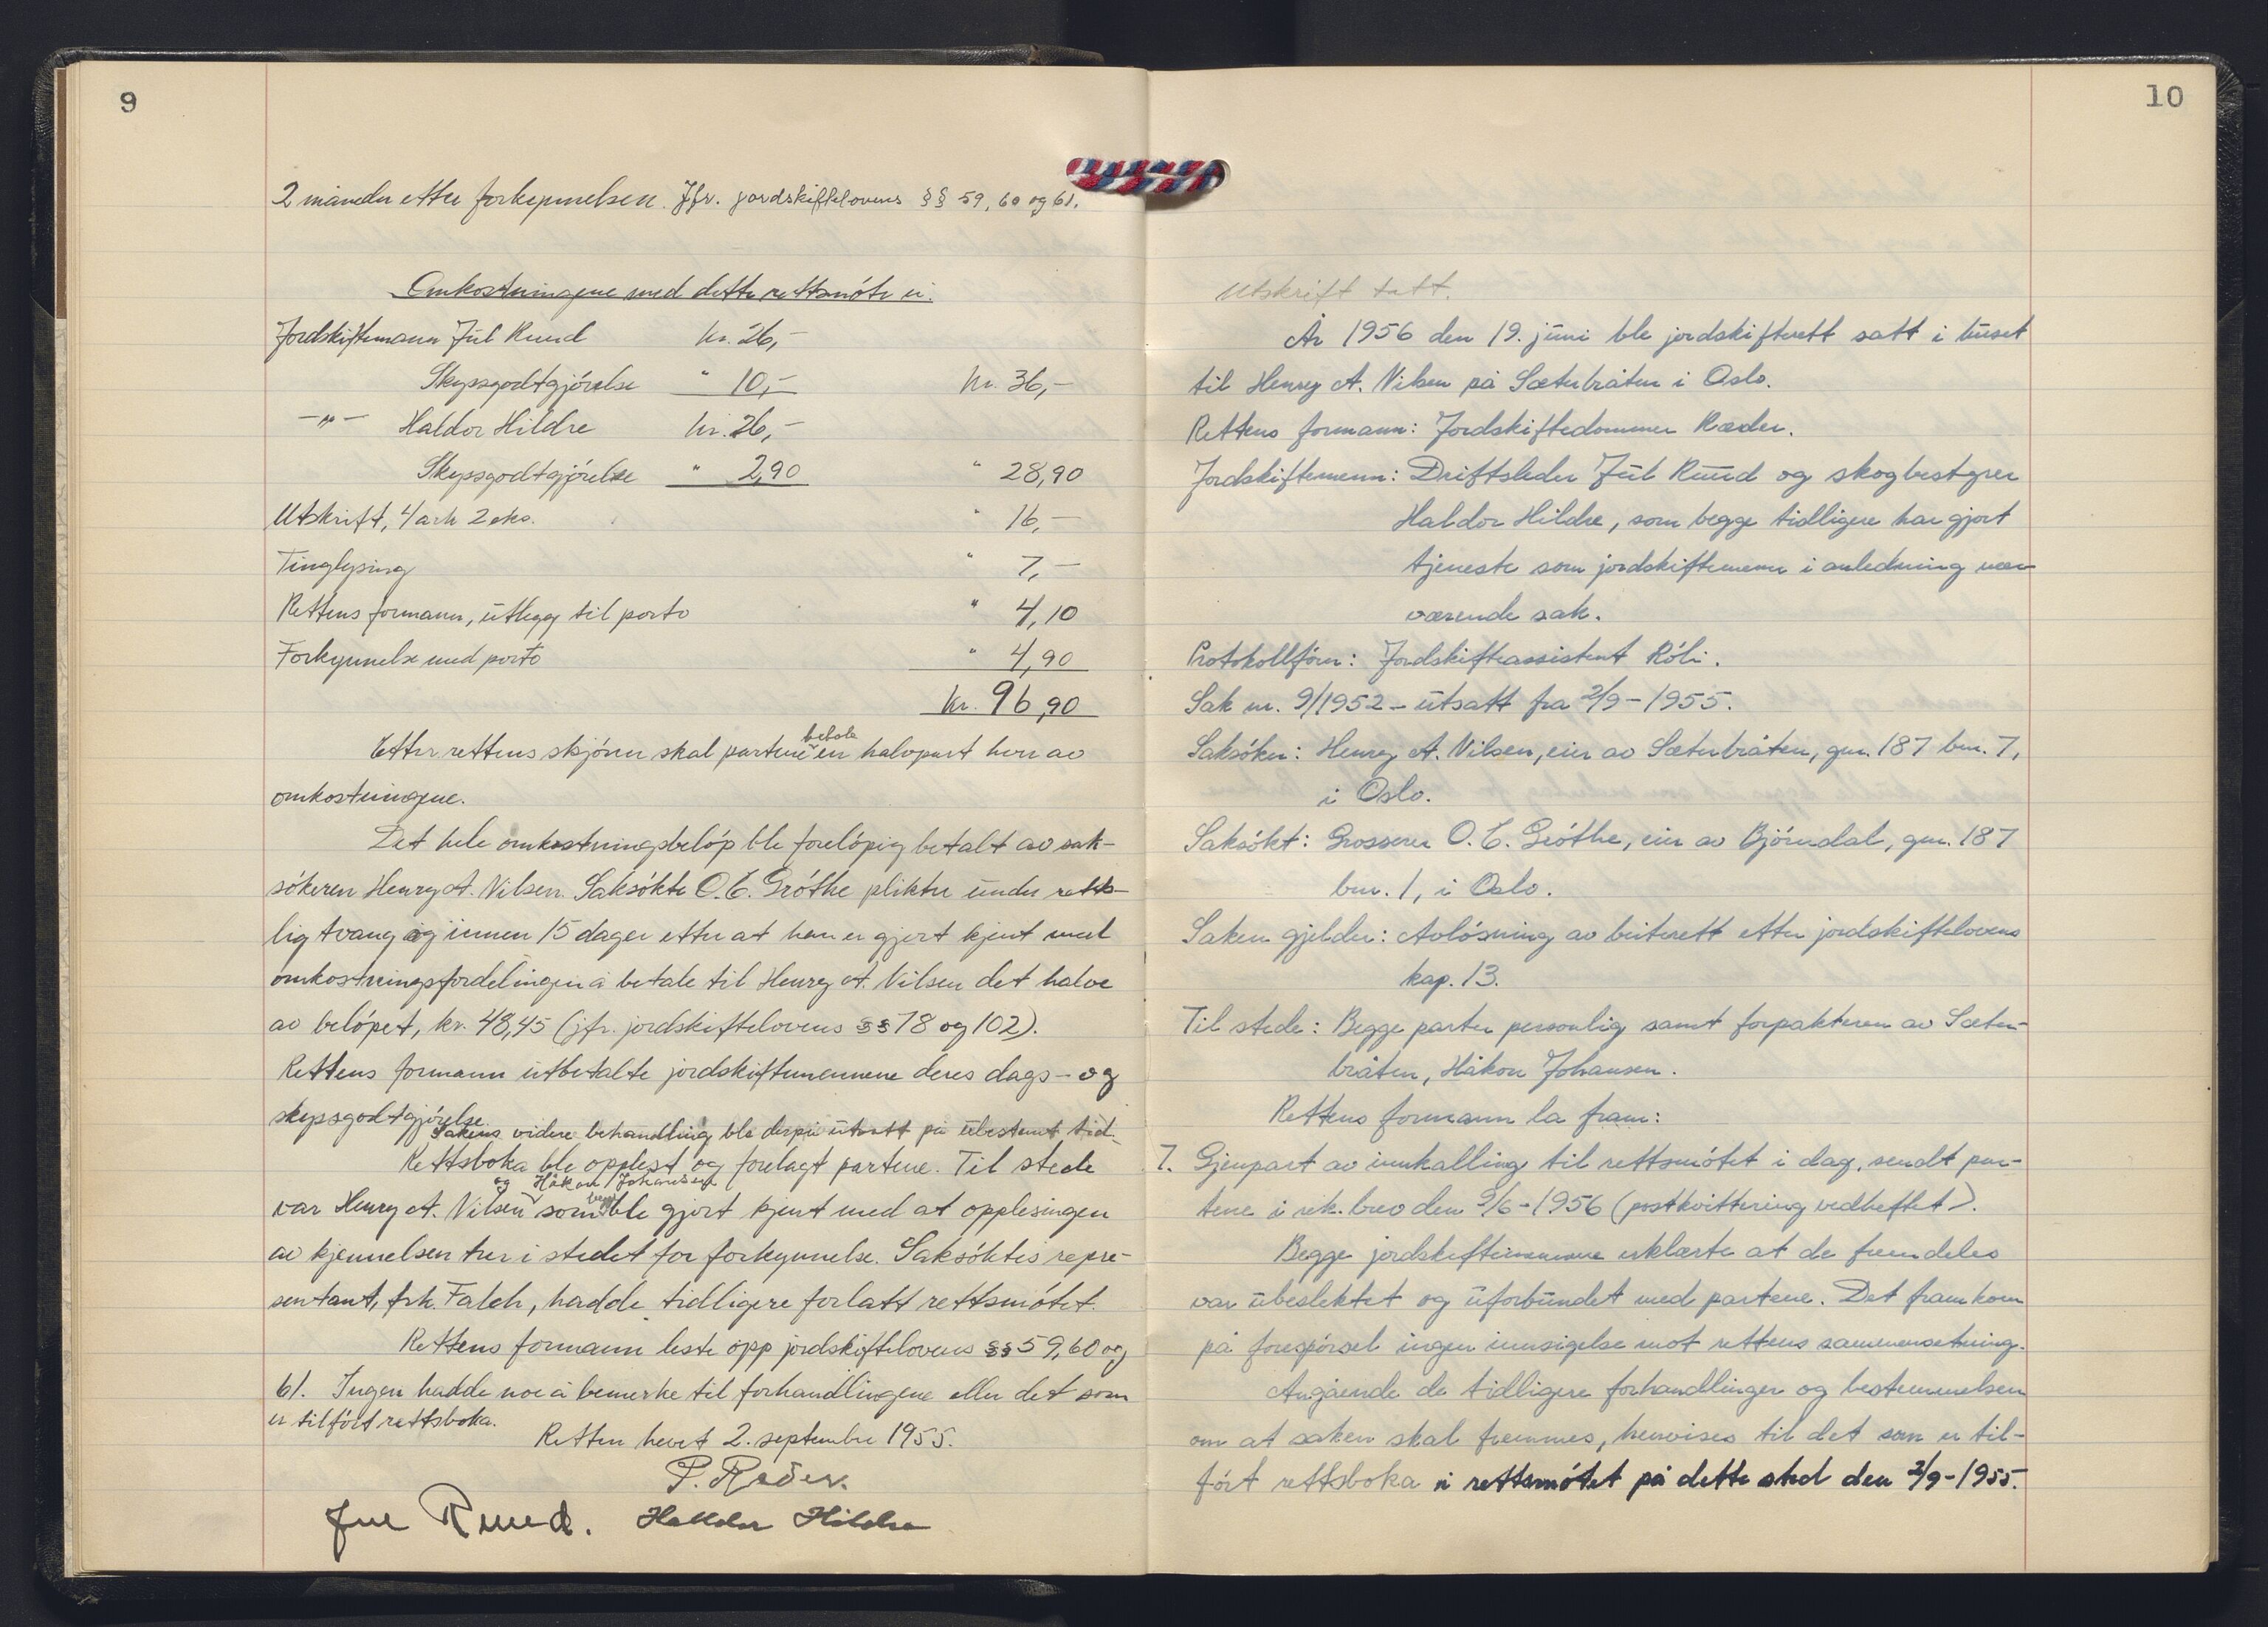 9
2 måneder etter forkynnelsen. Jfr. jordskiftelovens §§ 59, 60 og 61.
Omkostningene med dette rettsmöte er:
Jordskiftemann Jul Ruud kr. 26,-
Skyssgodtgjörelse " 10,- kr. 36,-
-"- Haldor Hildre kr. 26,-
Skyssgodtgjörelse " 2,90 " 28,90
Utskrift, 4 ark 2 eks. " 16,-
Tinglysing " 7,-
Rettens formann, utlegg til porto " 4,10
Forkynnelse med porto " 4,90
kr. 96,90
Etter rettens skjönn skal partene betale en halvpart hver av
omkostningene.
Det hele omkostningsbelöp ble forelöpig betalt av sak-
sökeren Henry A. Nilsen. Saksökte O. C. Gröthe plikter under retts-
lig tvang og innen 15 dager etter at han er gjort kjent med
omkostningsfordelingen å betale til Henry A. Nilsen det halve
av belöpet, kr. 48,45 (jfr. jordskiftelovens §§ 78 og 102).
Rettens formann utbetalte jordskiftemennene deres dags- og
skyssgodtgjörelse.
Sakens videre behandling ble derpå utsatt på ubestemt tid.
Rettsboka ble opplest og forelagt partene. Til stede
var Henry A. Nilsen og Håkon Johansen som begge ble gjort kjent med at opplesingen
av kjennelsen trer i stedet for forkynnelse. Saksöktes repre-
sentant, frk. Falch, hadde tidligere forlatt rettsmötet.
Rettens formann leste opp jordskiftelovens §§ 59, 60 og
61. Ingen hadde noe å bemerke til forhandlingene eller det som
er tilfört rettsboka.
Retten hevet 2. september 1955.
P. Ræder.
Jul Ruud. Haldor Hildre
10
Utskrift tatt.
År 1956 den 19. juni ble jordskifterett satt i huset
til Henry A. Nilsen på Sæterbråten i Oslo.
Rettens formann: Jordskiftedommer Ræder.
Jordskiftemenn: Driftsleder Jul Ruud og skogbestyrer
Haldor Hildre, som begge tidligere har gjort
tjeneste som jordskiftemenn i anledning nær-
værende sak.
Protokollförer: Jordskifteassistent Röli.
Sak nr. 9/1952 - utsatt fra 2/9-1955.
Saksöker: Henry A. Nilsen, eier av Sæterbråten, gnr. 187 bnr. 7,
i Oslo.
Saksökt: Grosserer O. C. Gröthe, eier av Björndal, gnr. 187
bnr. 1, i Oslo.
Saken gjelder: Avlösning av beiterett etter jordskiftelovens
kap. 13.
Til stede: Begge parter personlig samt forpakteren av Sæter-
bråten, Håkon Johansen.
Rettens formann la fram:
7. Gjenpart av innkalling til rettsmötet i dag, sendt par-
tene i rek. brev den 9/6-1956 (postkvittering vedheftet).
Begge jordskiftemennene erklærte at de fremdeles
var ubeslektet og uforbundet med partene. Det framkom
på forespörsel ingen innsigelse mot rettens sammensetning.
Angående de tidligere forhandlinger og bestemmelsen
om at saken skal fremmes, henvises til det som er til-
fört rettsboka i rettsmötet på dette sted den 2/9-1955.